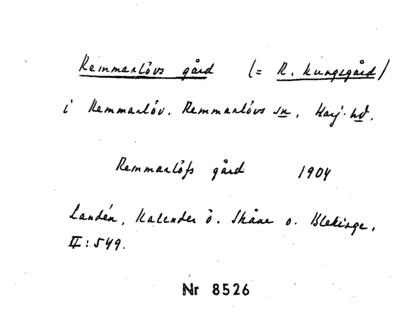 Remmarlövs gård (= R. Kungsgård)
i Remmarlöv, Remmarlövs sn, Harj. hd.
Remmarlöfs gård 1904
Landén, Kalender ö. Skåne o. Blekinge,
II: 549.
Nr 8526